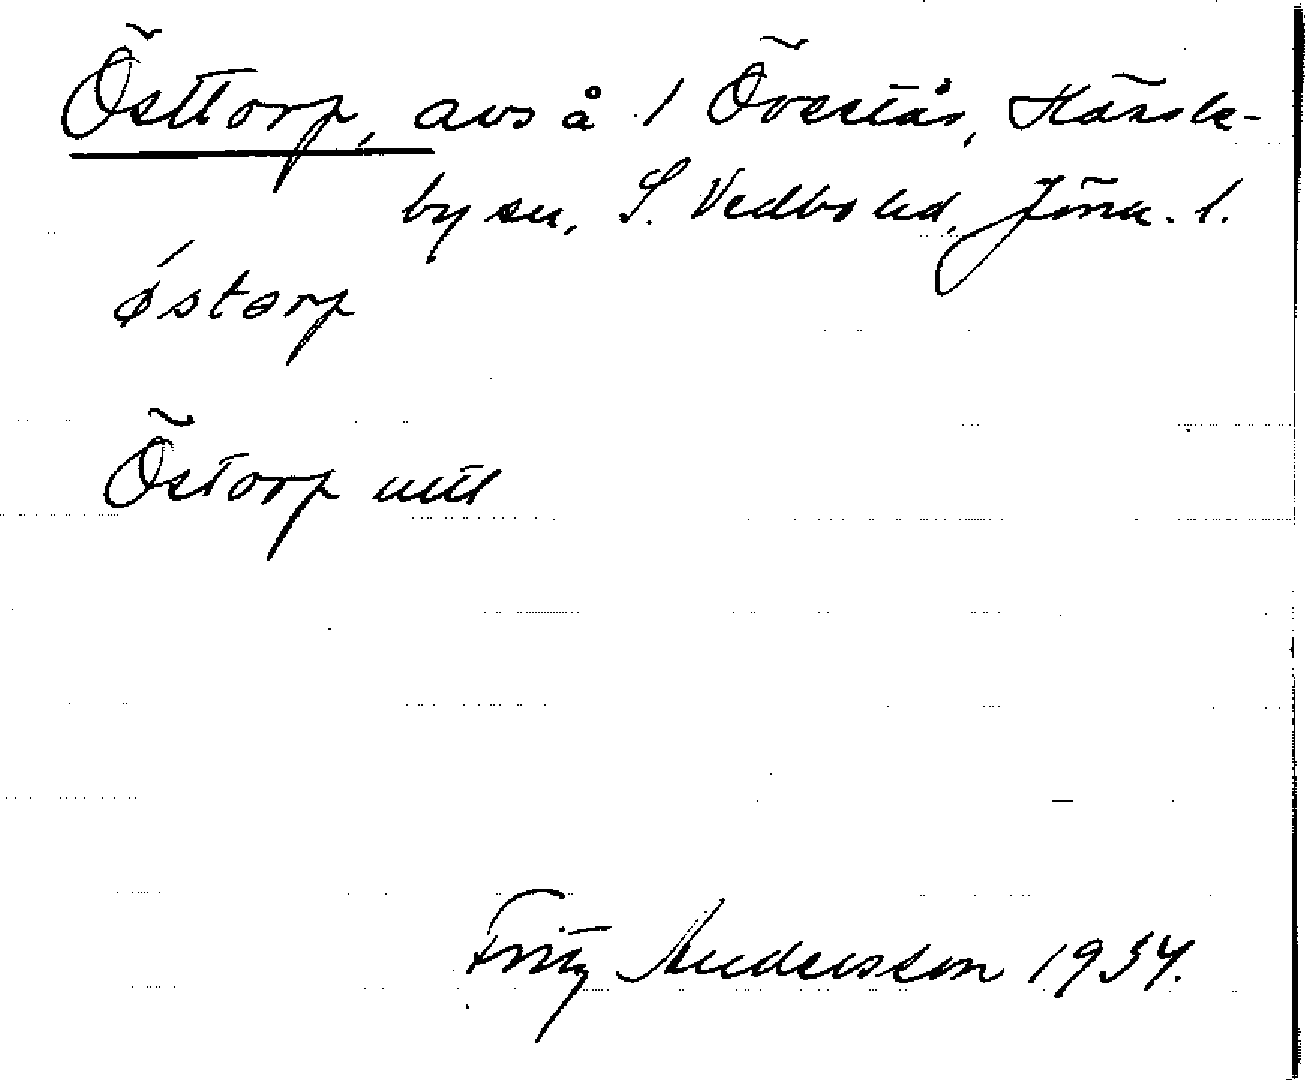 Östtorp, avs å 1 Hässle-
by sn, S. Vedbo hd, Jönk. l.
ǿstorp
Östorp
Fritz Andersson 1934.